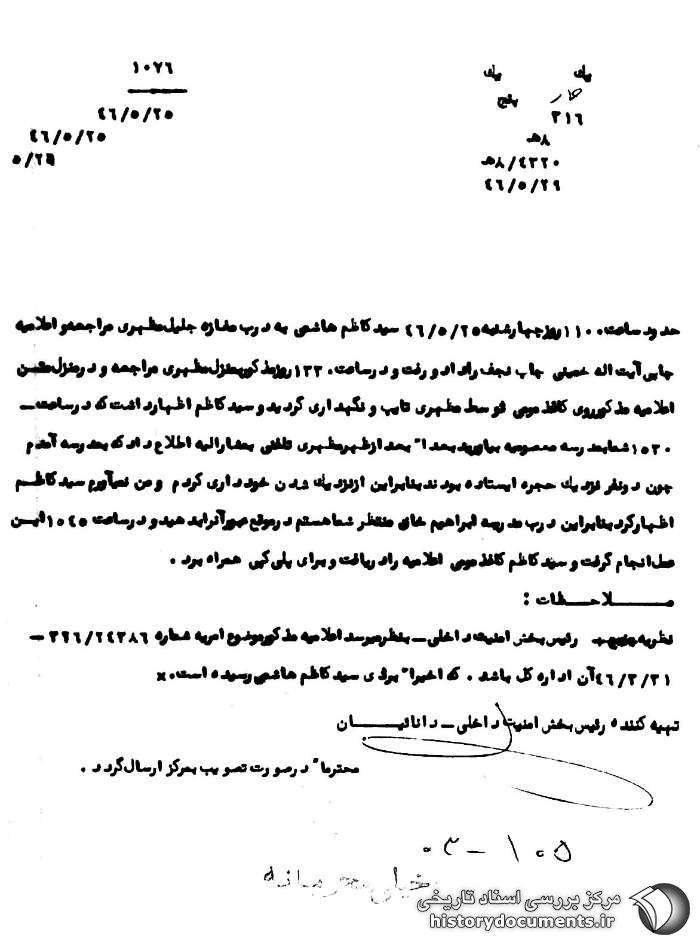 ۱۰۷۶
۴۶/۵/۲۵
۴۶/۵/۲۵
۵/۲۵
یك یك
پنج
۳۱۶
۸هـ
۸/۴۳۲۰هـ
۴۶/۵/۲۹
حدود ساعت ۱۱۰۰ روز چهارشنبه ۴۶/۵/۲۵ سید کاظم هاشمی به درب مغازه جلیل مظهری مراجعه و اعلامیه
چاپی آیت اله خمینی چاپ نجف را داد و رفت و در ساعت ۱۳۳۰ روز مذکور بمنزل مظهری مراجعه و در منزل متن
اعلامیه مذکور روی کاغذ مومی توسط مظهری تایپ و نگهداری گردید و سید کاظم اظهار داشت که در ساعت ـ
۱۵۳۰ شما بمدرسه معصومیه بیاورید بعدا" بعد از ظهر مظهری تلفنی بمشارالیه اطلاع داد که بمدرسه آمدم
چون دو نفر نزدیك حجره ایستاده بودند بنابراین از نزدیك شدن خودداری کردم و من نمیآورم سید کاظم
اظهار کرد بنابراین درب مدرسه ابراهیم خان منتظر شما هستم در موقع عبور آنرا بدهید و در ساعت ۱۵۴۵ این
عمل انجام گرفت و سید کاظم کاغذ مومی اعلامیه را دریافت و برای پلی کپی همراه برد .
مـلاحـظات :
نظریه رئیس بخش امنیت داخلی ـ بنظر میرسد اعلامیه مذکور موضوع امریه شماره ۳۲۶/۲۴۳۸۶ ـ
۴۶/۳/۳۱ آن اداره کل باشد . که اخیرا" بدست سید کاظم هاشمی رسیده است. x
تهیه کننده رئیس بخش امنیت داخلی ـ دانائیـان
محترما" در صورت تصویب بمرکز ارسال گردد .
۱۰۵ - ۰۳
خیلی محرمانه
مرکز بررسی اسناد تاریخی
historydocuments.ir